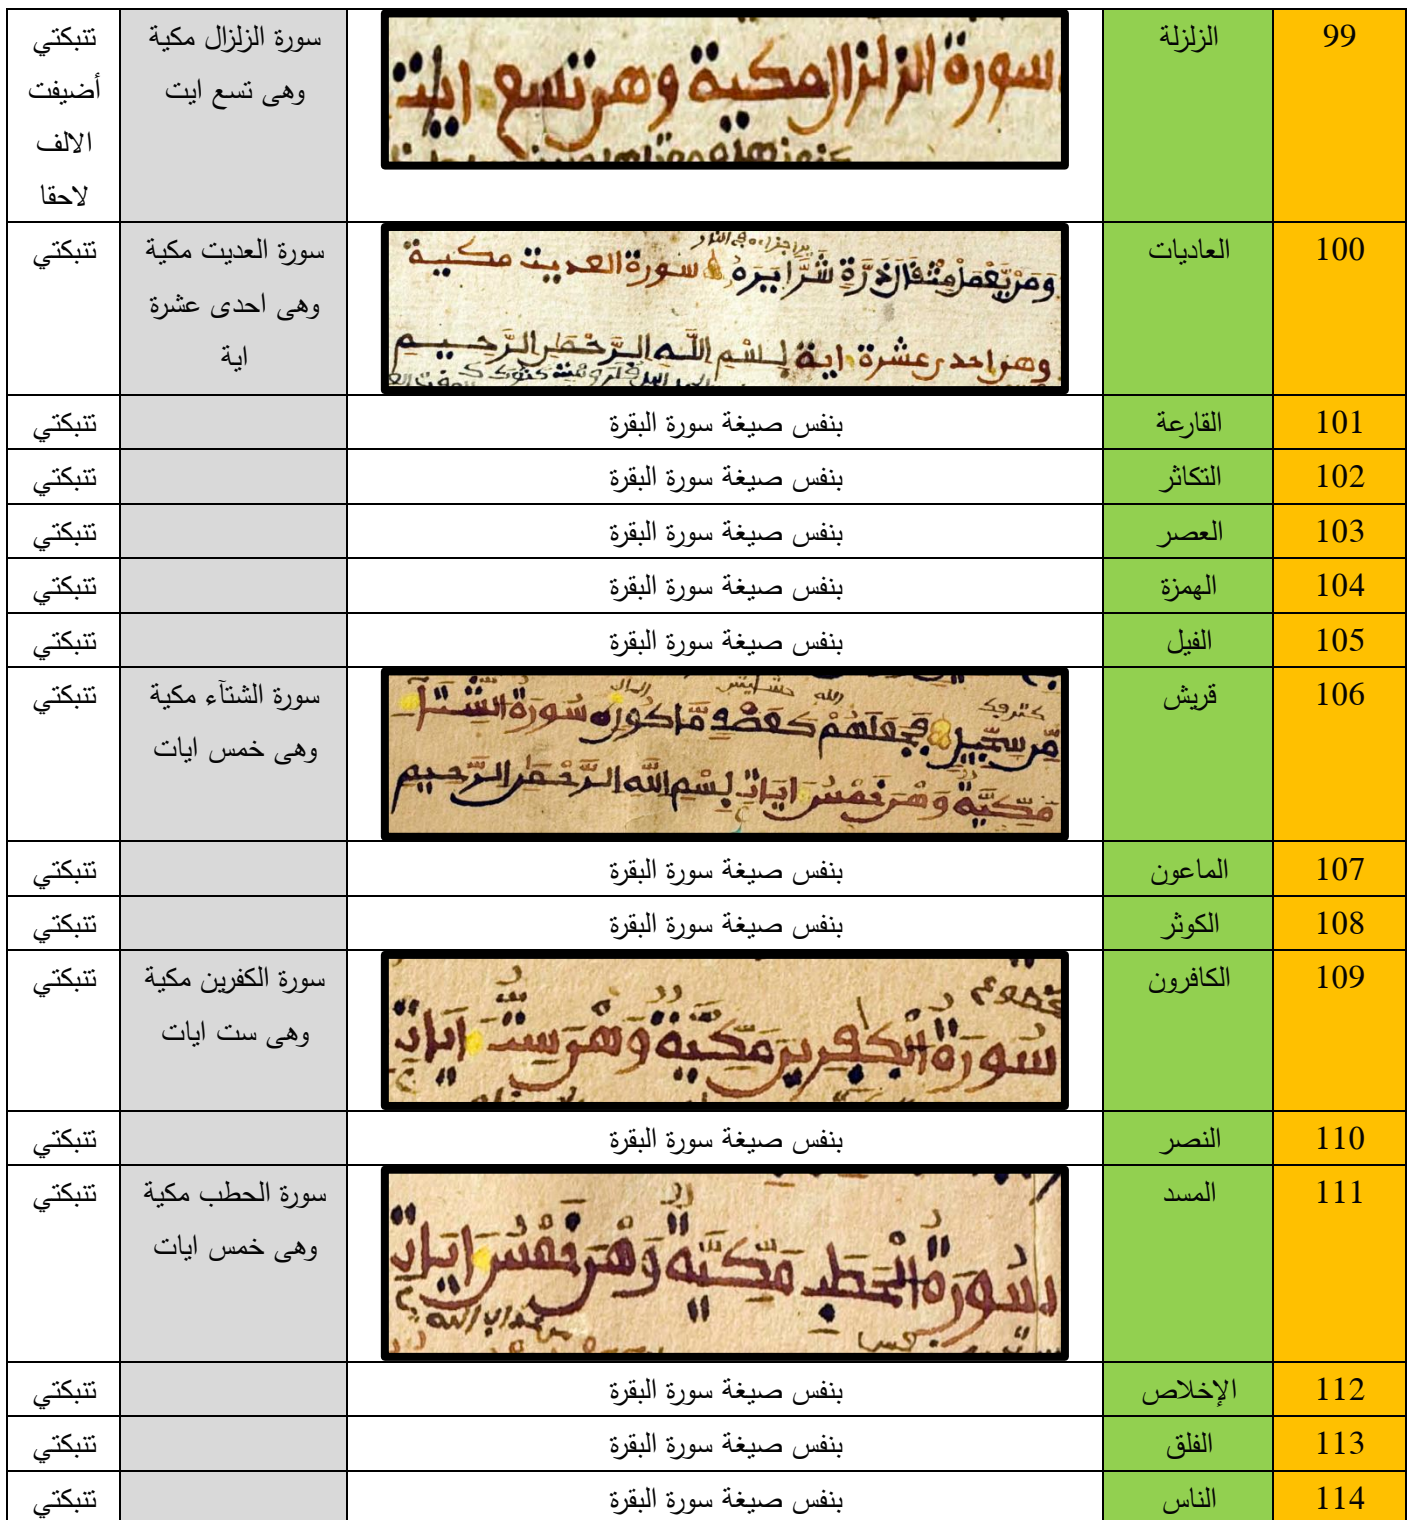 99 الزلزلة سورة الزلزال مكية وهى تسع ايت سورة الزلزال مكية تنبكتي
وهى تسع ايت أضيفت
الالف
لاحقا
100 العاديات ومن يعمل مثقال ذرة شرا يره سورة العديت مكية سورة العديت مكية تنبكتي
وهى احدى عشرة اية بسم الله الرحمن الرحيم وهى احدى عشرة
اية
101 القارعة بنفس صيغة سورة البقرة تنبكتي
102 التكاثر بنفس صيغة سورة البقرة تنبكتي
103 العصر بنفس صيغة سورة البقرة تنبكتي
104 الهمزة بنفس صيغة سورة البقرة تنبكتي
105 الفيل بنفس صيغة سورة البقرة تنبكتي
106 قريش من سجيل فجعلهم كعصف ماكول سورة الشتآء سورة الشتآء مكية تنبكتي
مكية وهى خمس ايات بسم الله الرحمن الرحيم وهى خمس ايات
107 الماعون بنفس صيغة سورة البقرة تنبكتي
108 الكوثر بنفس صيغة سورة البقرة تنبكتي
109 الكافرون سورة الكفرين مكية وهى ست ايات سورة الكفرين مكية تنبكتي
وهى ست ايات
110 النصر بنفس صيغة سورة البقرة تنبكتي
111 المسد سورة الحطب مكية وهى خمس ايات سورة الحطب مكية تنبكتي
وهى خمس ايات
112 الإخلاص بنفس صيغة سورة البقرة تنبكتي
113 الفلق بنفس صيغة سورة البقرة تنبكتي
114 الناس بنفس صيغة سورة البقرة تنبكتي